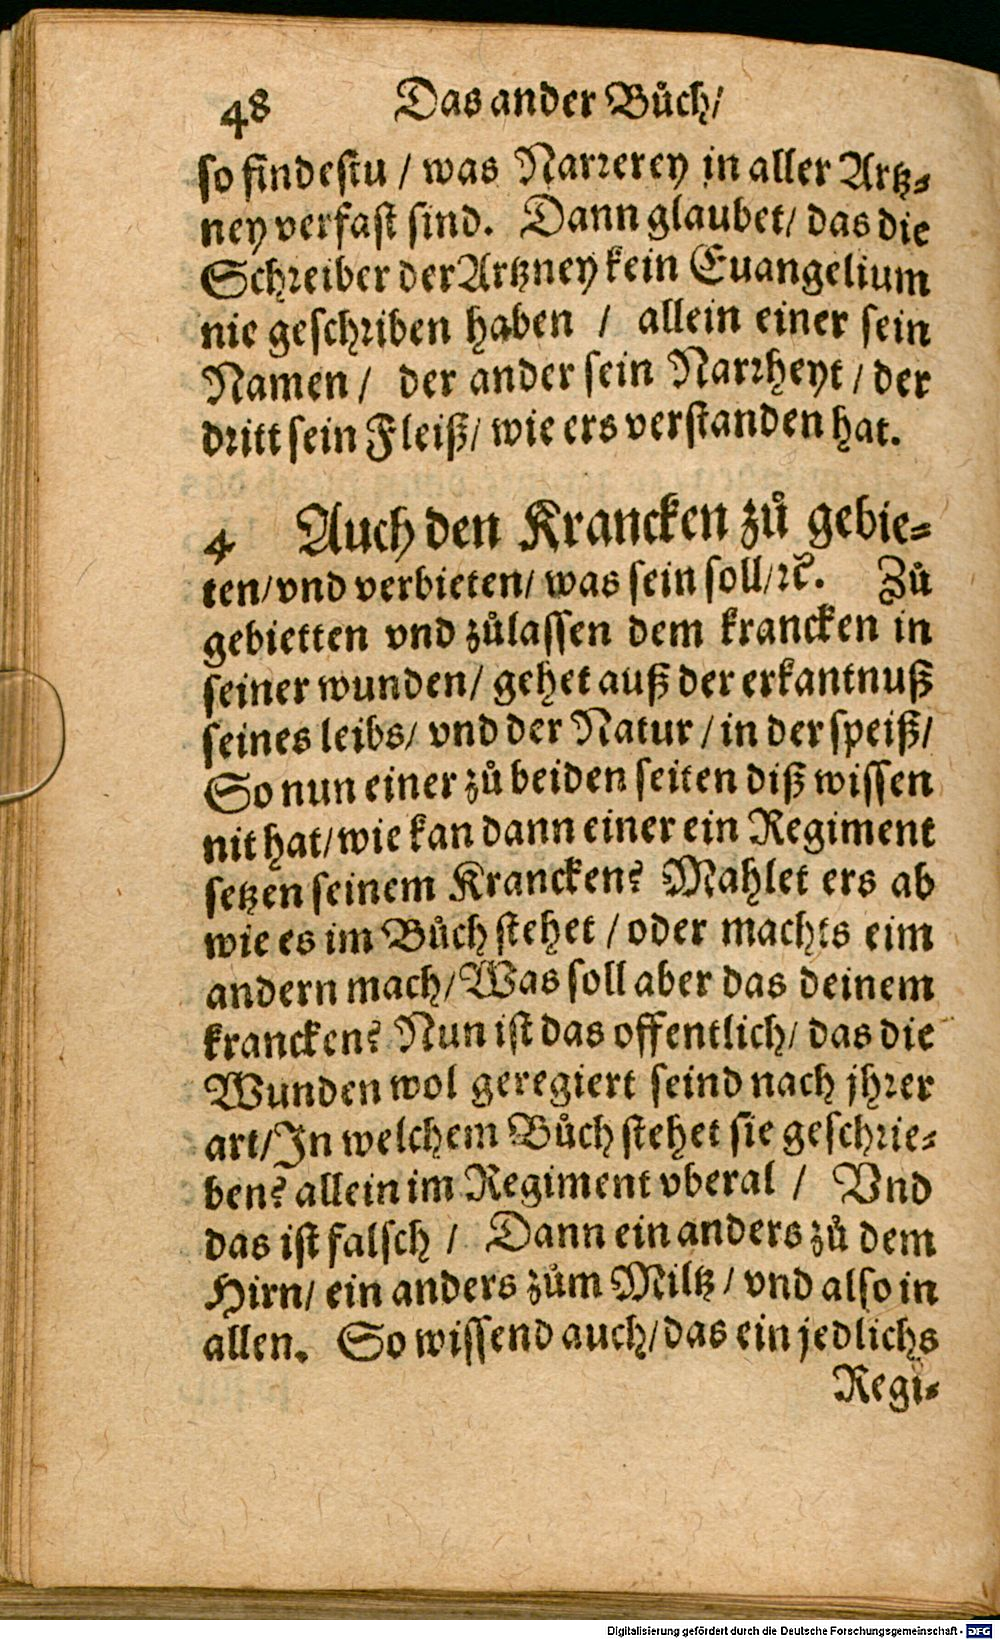 48 Das ander Bůch/
so findestu / was Narrerey in aller Artz-
ney verfast sind. Dann glaubet/ das die
Schreiber der Artzney kein Euangelium
nie geschriben haben / allein einer sein
Namen / der ander sein Narrheyt / der
dritt sein Fleiß/ wie ers verstanden hat.
4 Auch den Krancken zů gebie-
ten/vnd verbieten/ was sein soll/ꝛc. Zů
gebietten vnd zůlassen dem krancken in
seiner wunden/ gehet auß der erkantnuß
seines leibs/ vnd der Natur / in der speiß/
So nun einer zů beiden seiten diß wissen
nit hat/wie kan dann einer ein Regiment
setzen seinem Krancken? Mahlet ers ab
wie es im Bůch stehet / oder machts eim
andern mach/Was soll aber das deinem
krancken? Nun ist das offentlich/ das die
Wunden wol geregiert seind nach jhrer
art/In welchem Bůch stehet sie geschrie-
ben? allein im Regiment vberal / Vnd
das ist falsch / Dann ein anders zů dem
Hirn/ ein anders zům Miltz / vnd also in
allen. So wissend auch/das ein jedlichs
Regi-
Digitalisierung gefördert durch die Deutsche Forschungsgemeinschaft - DFG